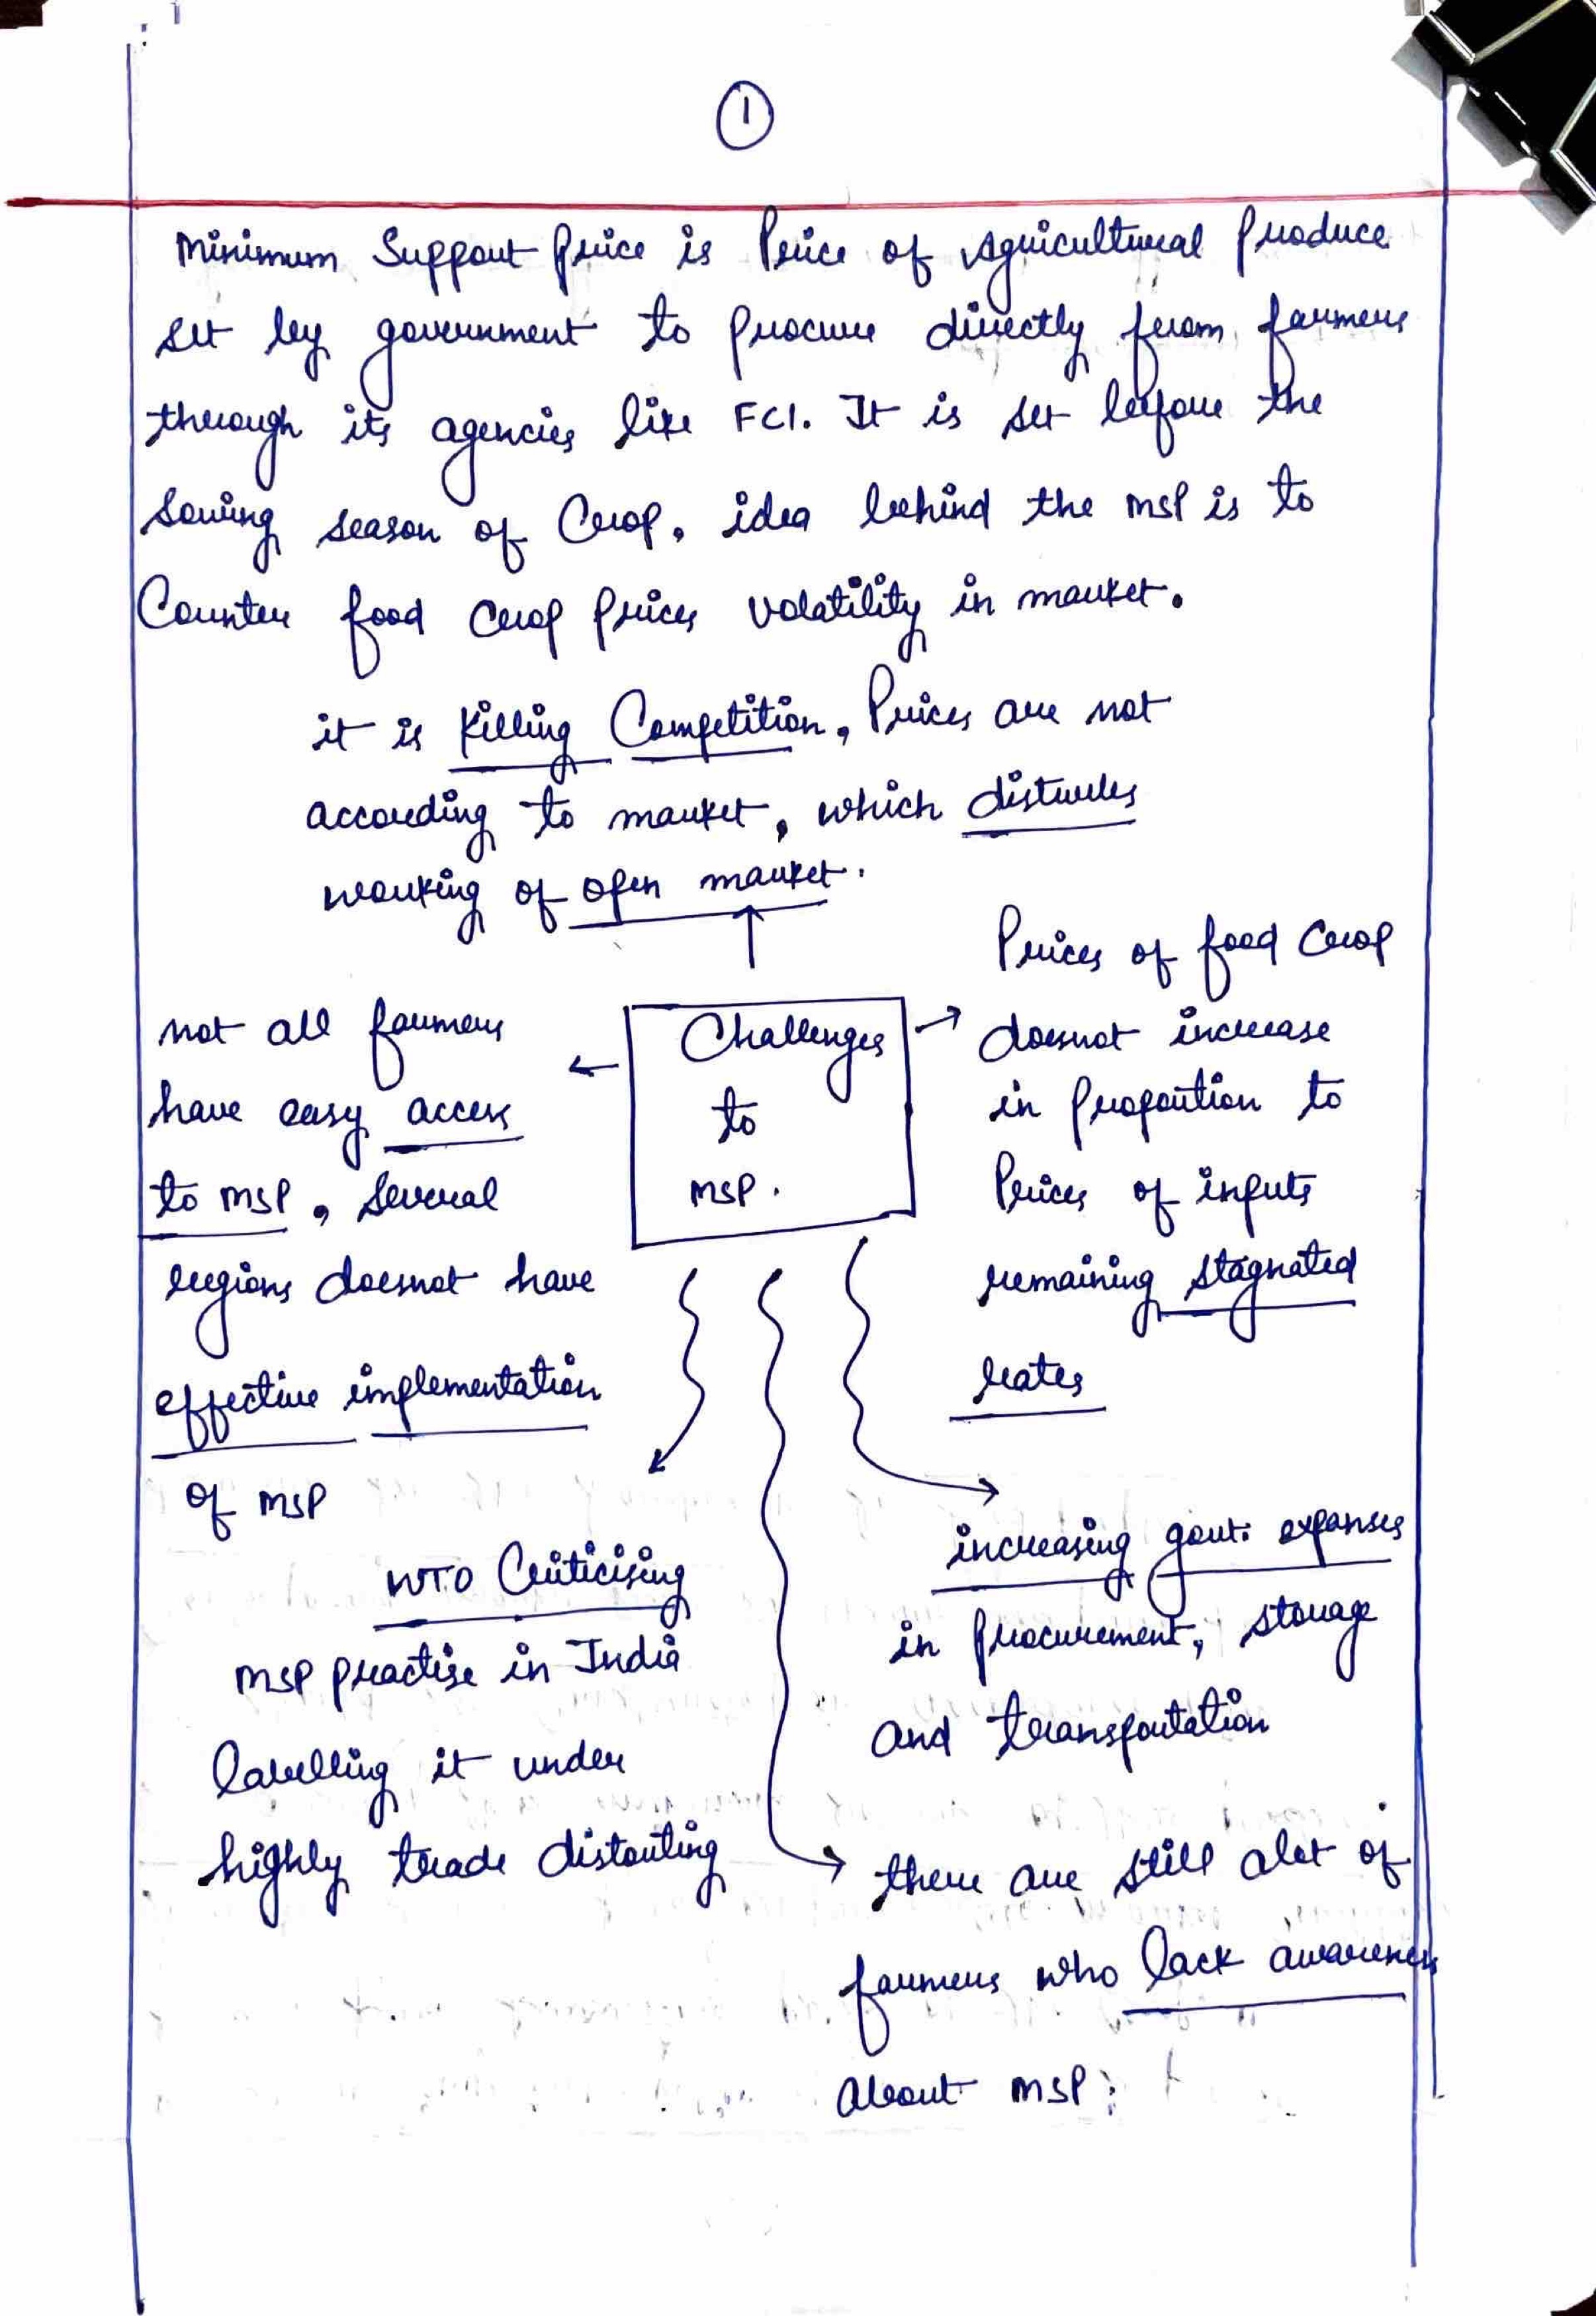 1
Minimum Support Price is Price of Agricultural Produce
set by government to procure directly from farmers
through its agencies like FCI. It is set before the
Sowing season of Crop. idea behind the MSP is to
Counter food crop prices volatility in market.
it is Killing Competition, Prices are not
according to market, which disturbs
working of open market.
Challenges
to
MSP.
not all farmers
have easy access
to MSP, Several
regions doesnot have
effective implementation
of MSP
Prices of food Crop
doesnot increase
in proportion to
Prices of inputs
remaining stagnated
rates
WTO Criticising
MSP practise in India
labelling it under
highly trade distorting
increasing govt. expanses
in procurement, storage
and transportation
there are still alot of
farmers who lack awareness
About MSP.